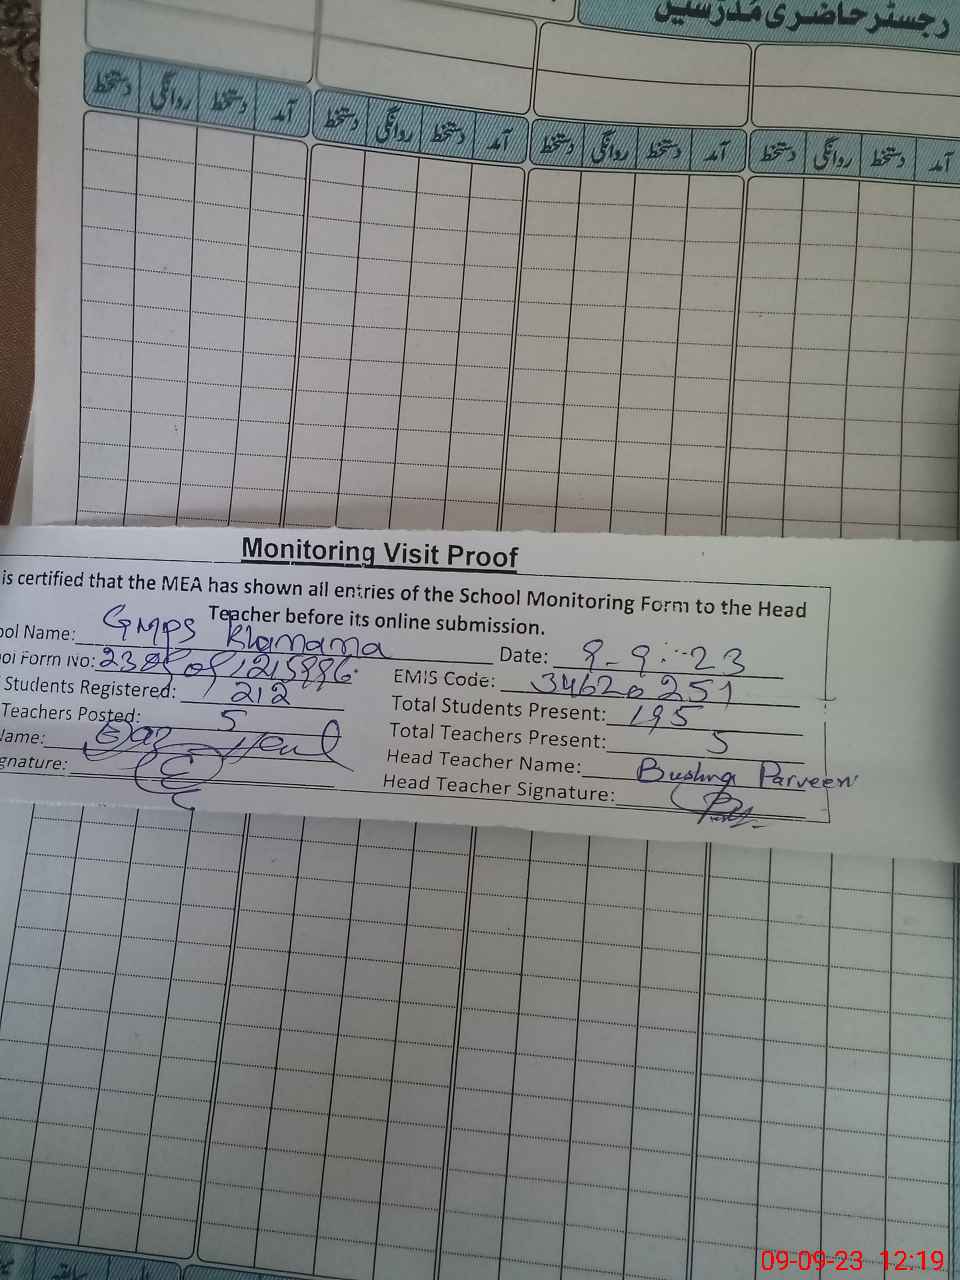 رجسٹر حاضری مدرسین
آمد دستخط روانگی دستخط آمد دستخط روانگی دستخط آمد دستخط روانگی دستخط آمد دستخط روانگی دستخط
Monitoring Visit Proof
is certified that the MEA has shown all entries of the School Monitoring Form to the Head
Teacher before its online submission.
ool Name: GMPS Khamama Date: 9-9-23
ool Form No: EMIS Code: 34620251
Students Registered: 212 Total Students Present: 195
Teachers Posted: 5 Total Teachers Present: 5
Name: Head Teacher Name: Bushra Parveen
gnature: Head Teacher Signature:
09-09-23 12:19